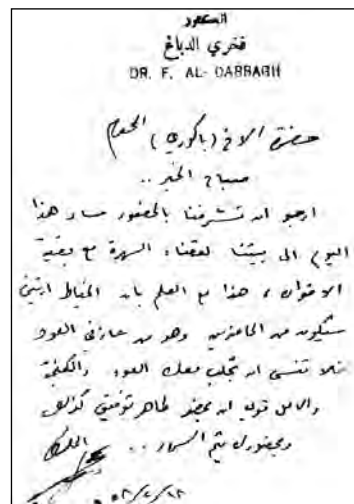 الدكتور
فخري الدباغ
DR. F. AL-DABBAGH
حضرة الاخ (باكوري) المحترم
صباح الخير ..
ارجو ان تشرفنا بالحضور مساء هذا
اليوم الى بيتنا لقضاء السهرة مع بقية
الاخوان ، هذا مع العلم بان
سيكون من الحاضرين وهو من عازفي العود
فلا تنسى ان تجلب معك العود والكمنجة
والامل قوي ان يحضر طاهر توفيق كذلك
وبحضورك يتم السرور ..